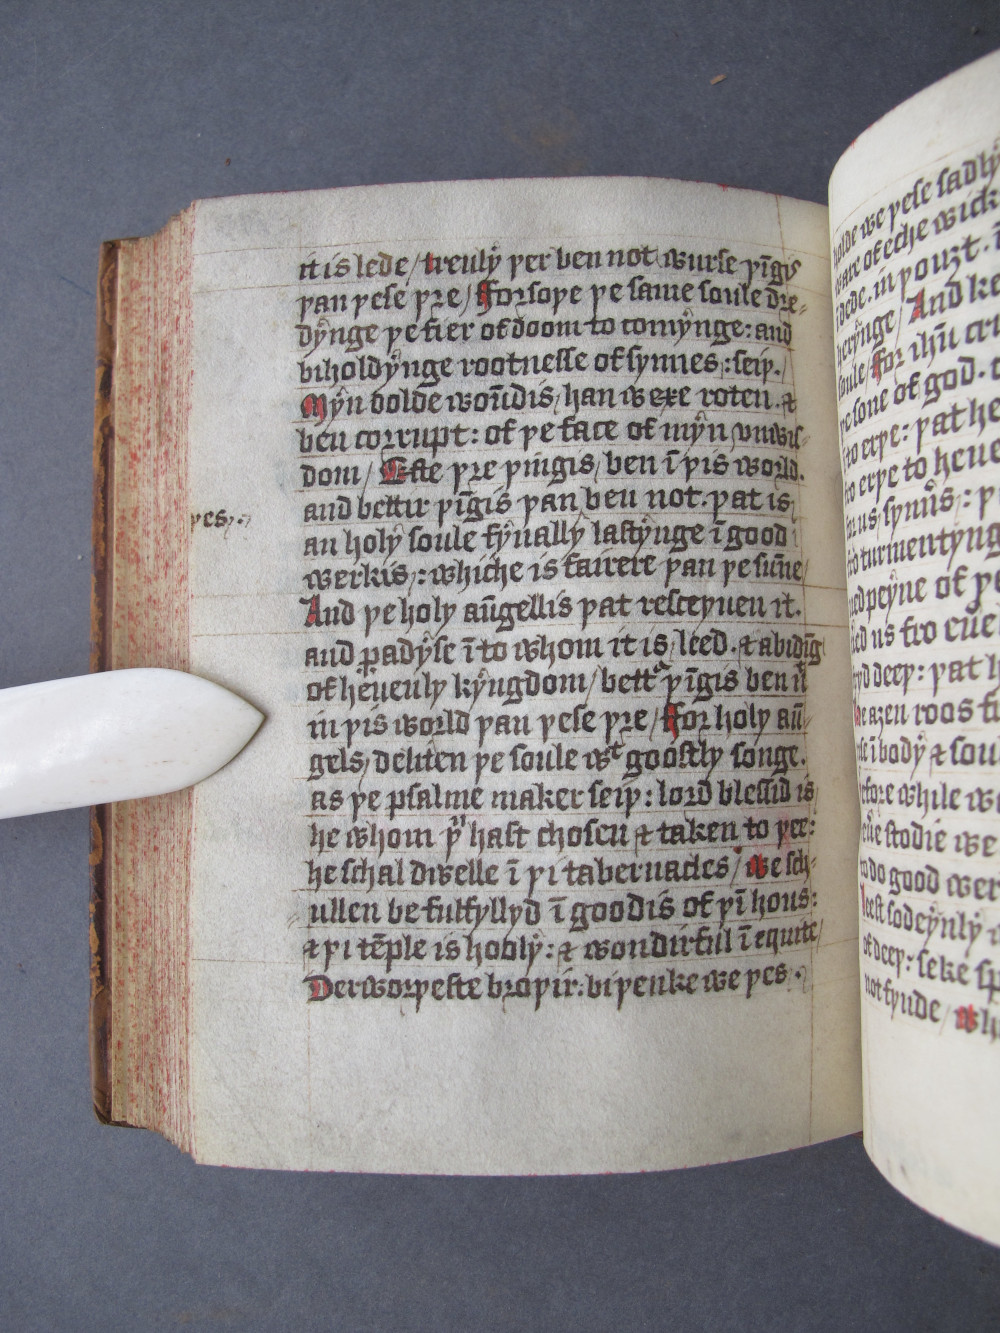 it is lede / treulẏ þer ben not wurse þīgis
þan þese þre / Forsoþe þe same soule dre⸗
dẏnge þe fier of doom to comẏnge: and
biholdẏnge rootnesse of sẏnnes /: seiþ.
Mẏn oolde woūdis / han wexe roten . ⁊
ben corrupt: of þe face of mẏn vnwis⸗
dom / Efte þre þingis / ben ī þis world.
and bettir þīgis þan ben not. þat is /
an holẏ soule fẏnally lastẏnge ī good
werkis /: whiche is fairere þan þe sūne /
And þe holy aūgellis þat resceyuen it.
and ꝑadẏse īto whom it is / leed . ⁊ abidīg
of heuenly kẏngdom / bettᵉ þīgis ben n̄
in þis world þan þese þre / For holy aū⸗
gels / deliten þe soule wᵗ goostly songe.
as þe psalme maker seiþ: lord blessid is
he whom þᵘ hast chosen ⁊ taken to þee:
he schal dwelle ī þi tabernacles / we sch⸗
ullen be fulfyllyd ī goodis of þī hous:
⁊ þi tēple is hoolẏ: ⁊ wondirful ī equite /
Derworþeste broþir: biþenke we þes.
þes
holde we þese sadlẏ
ware of eche wick
ī dede. in þouȝt.
herẏnge / And ke
soule / For ihū cri
þe sone of god.
to erþe: þat he
fro erþe to heue
for us / sẏnn̄s /: þ
turmentẏng
peẏne of þe
us fro eue
deep: þat h
aȝen roos f
ī bodẏ ⁊ soul
while we
studie we
to do good wer
leest sodeẏnlẏ
of deep: seke
not fynde / Wh